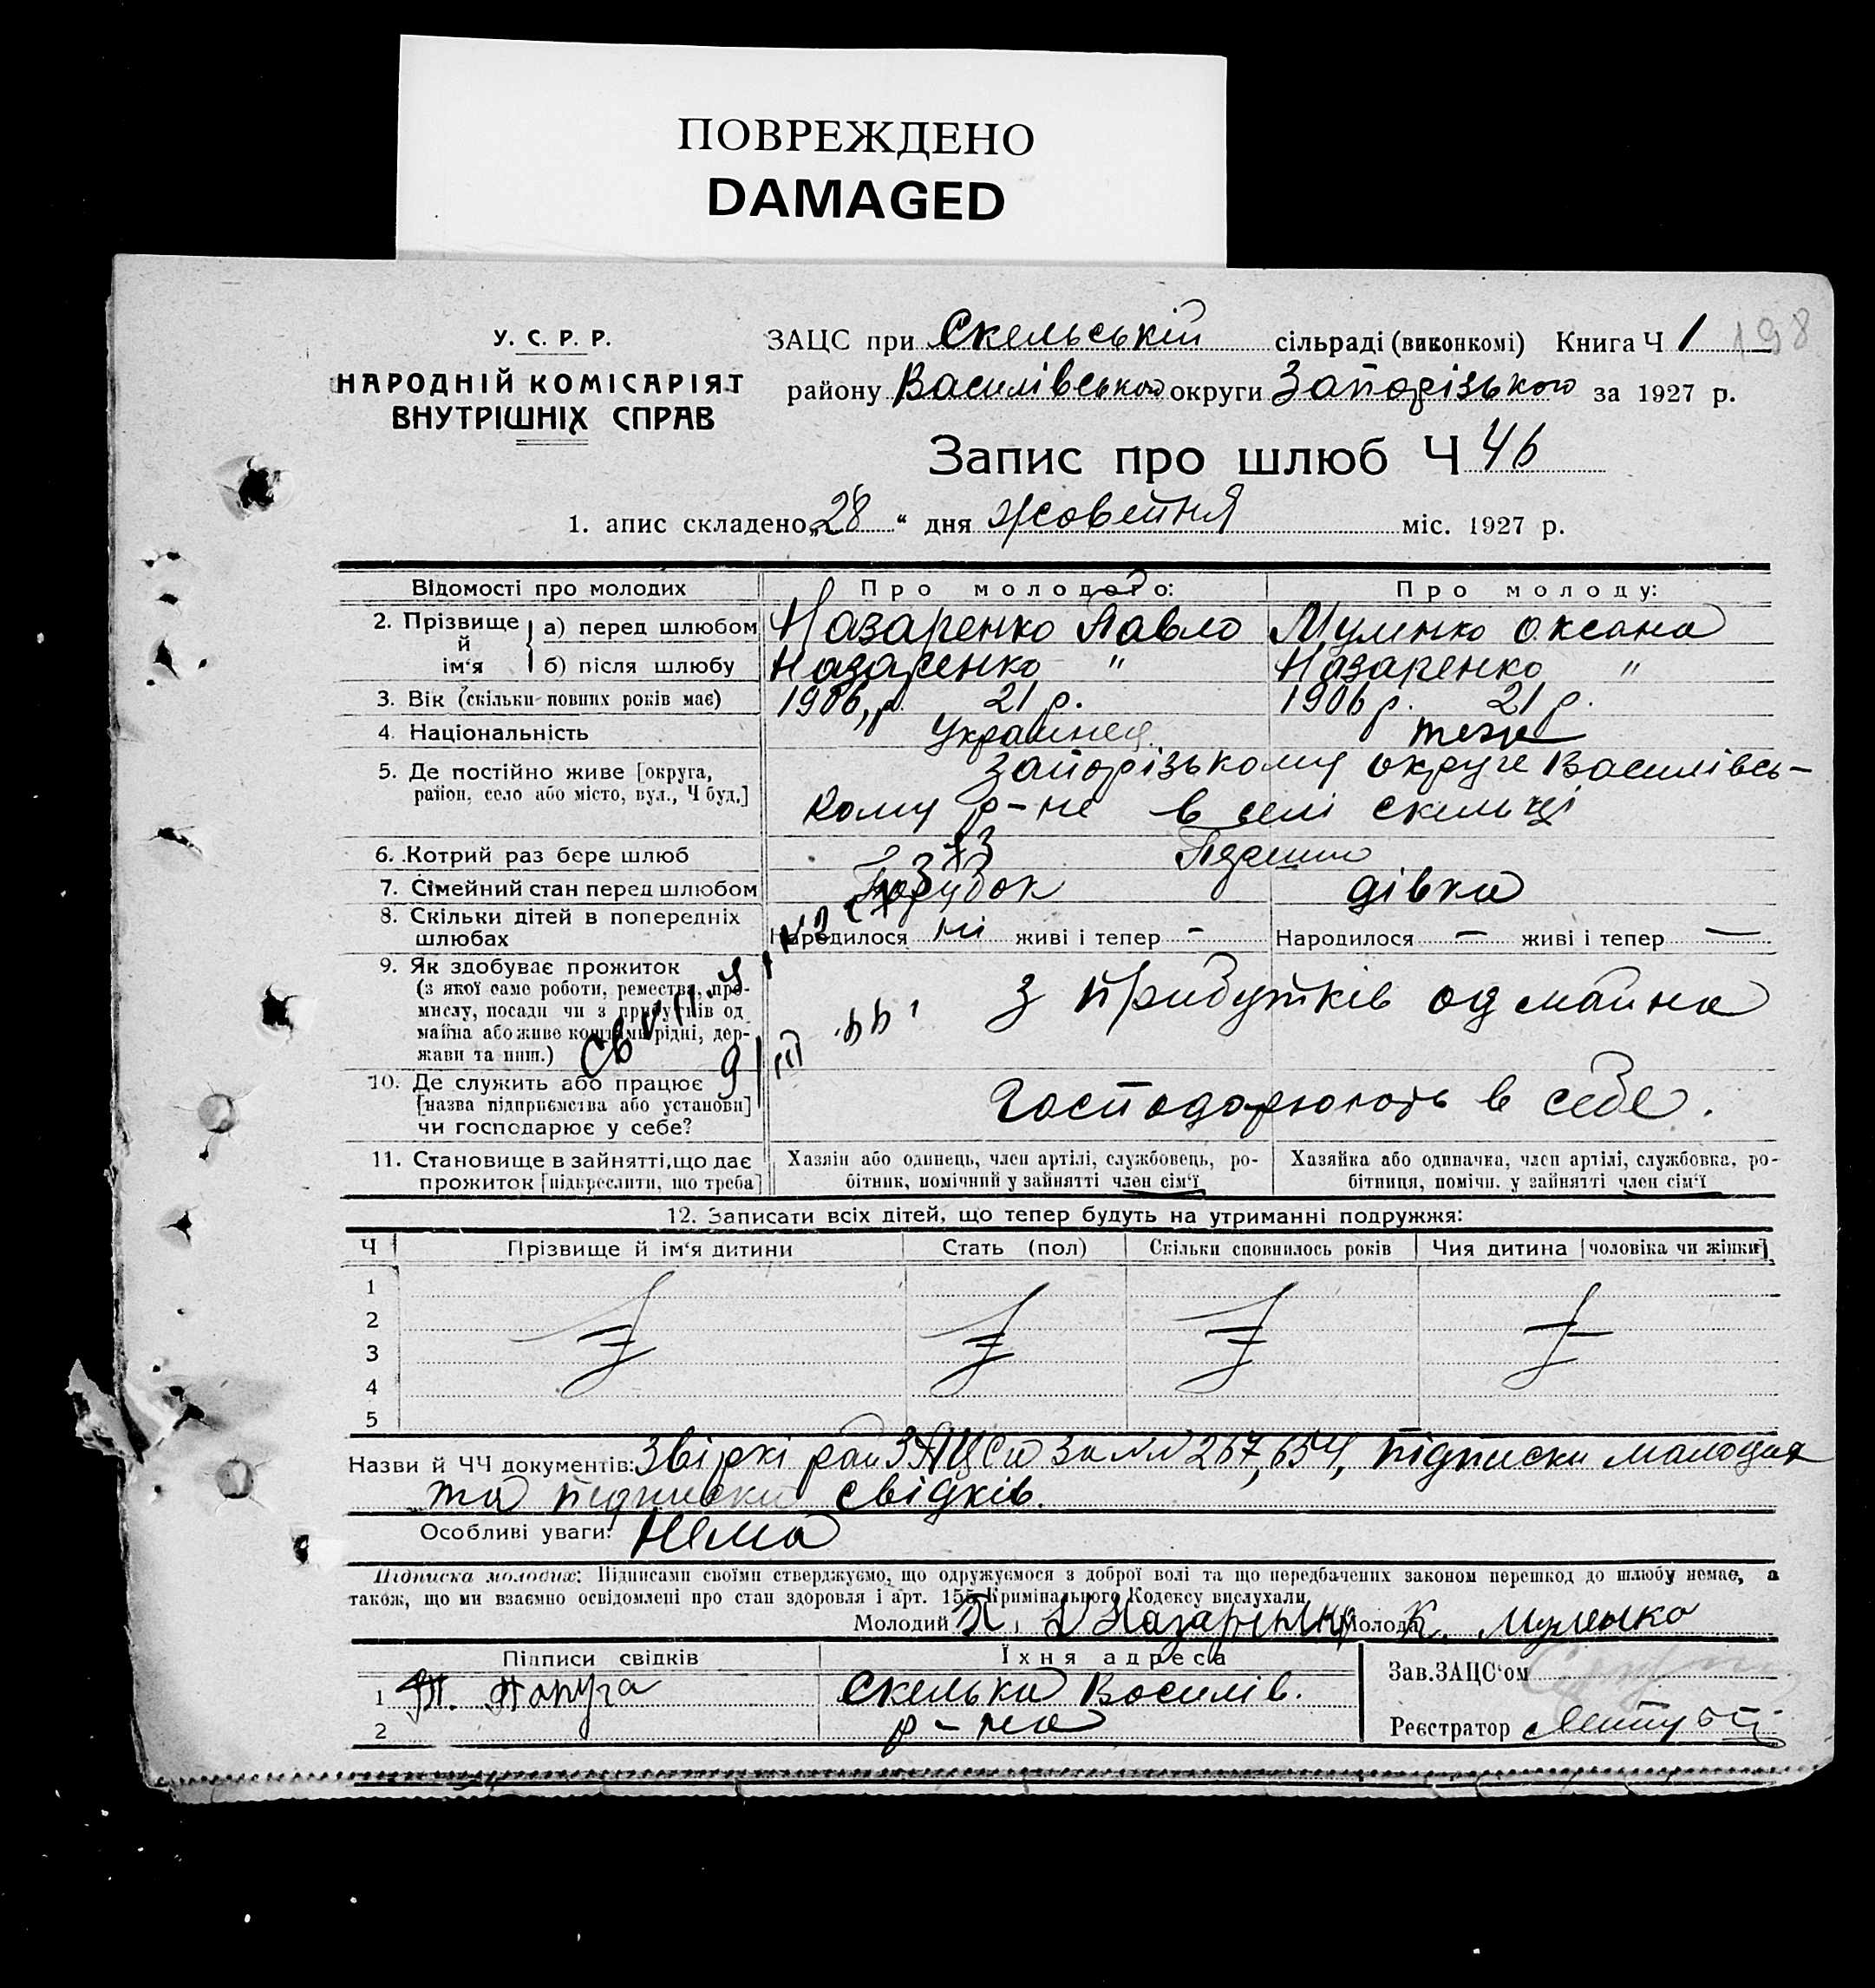 ПОВРЕЖДЕНО
DAMAGED
У. С. Р. Р.
НАРОДНІЙ КОМІСАРІЯТ
ВНУТРІШНІХ СПРАВ
ЗАЦС при Скельській сільраді (виконкомі) Книга Ч 1 198
району Василівського округи Запорізького за 1927 р.
Запис про шлюб Ч 46
1. апис складено „28“ дня жовтня міс. 1927 р.
Відомості про молодих Про молодого: Про молоду:
2. Прізвище й ім‘я а) перед шлюбом Назаренко Павло Муленко Оксана
б) після шлюбу Назаренко " Назаренко "
3. Вік (скільки повних років має) 1906 р. 21 р. 1906 р. 21 р.
4. Національність Українец. теж
5. Де постійно живе [округа, Запорізькому округе Василівсь-
район, село або місто, вул., Ч буд.] кому р-не в селі Скельці
6. Котрий раз бере шлюб Перший
7. Сімейний стан перед шлюбом Парубок дівка
8. Скільки дітей в попередніх
шлюбах Народилося ні живі і тепер - Народилося — живі і тепер —
9. Як здобуває прожиток
(з якої саме роботи, ремества, про-
мислу, посади чи з прибутків од з прибутків од майна
майна або живе коштами рідні, дер-
жави та инш.)
10. Де служить або працює
[назва підприємства або установи] Господарюють в себе.
чи господарює у себе?
11. Становище в зайнятті, що дає Хазяїн або одинець, член артілі, службовець, ро- Хазяйка або одиначка, член артілі, службовка, ро-
прожиток [підкреслити, що треба] бітник, помічний у зайнятті член сім‘ї бітниця, помічн. у зайнятті член сім‘ї
12. Записати всіх дітей, що тепер будуть на утриманні подружжя:
Ч Прізвище й ім‘я дитини Стать (пол) Скільки сповнилось років Чия дитина [чоловіка чи жінки]
1
2
3
4
5
Назви й ЧЧ документів: Звіркі рай ЗАЦСа за NN 267, 654, підписки молодих
та підписки свідків.
Особливі уваги: Нема
Підписка молодих: Підписами своїми стверджуємо, що одружуємося з доброї волі та що передбачених законом перешкод до шлюбу немає, а
також, що ми взаємно освідомлені про стан здоровля і арт. 155 Кримінального Кодексу вислухали.
Молодий Назаренко Молода К. Муленко
Підписи свідків Їхня адреса Зав.ЗАЦС‘ом
1 Скелька Василів.
2 р-на Реєстратор